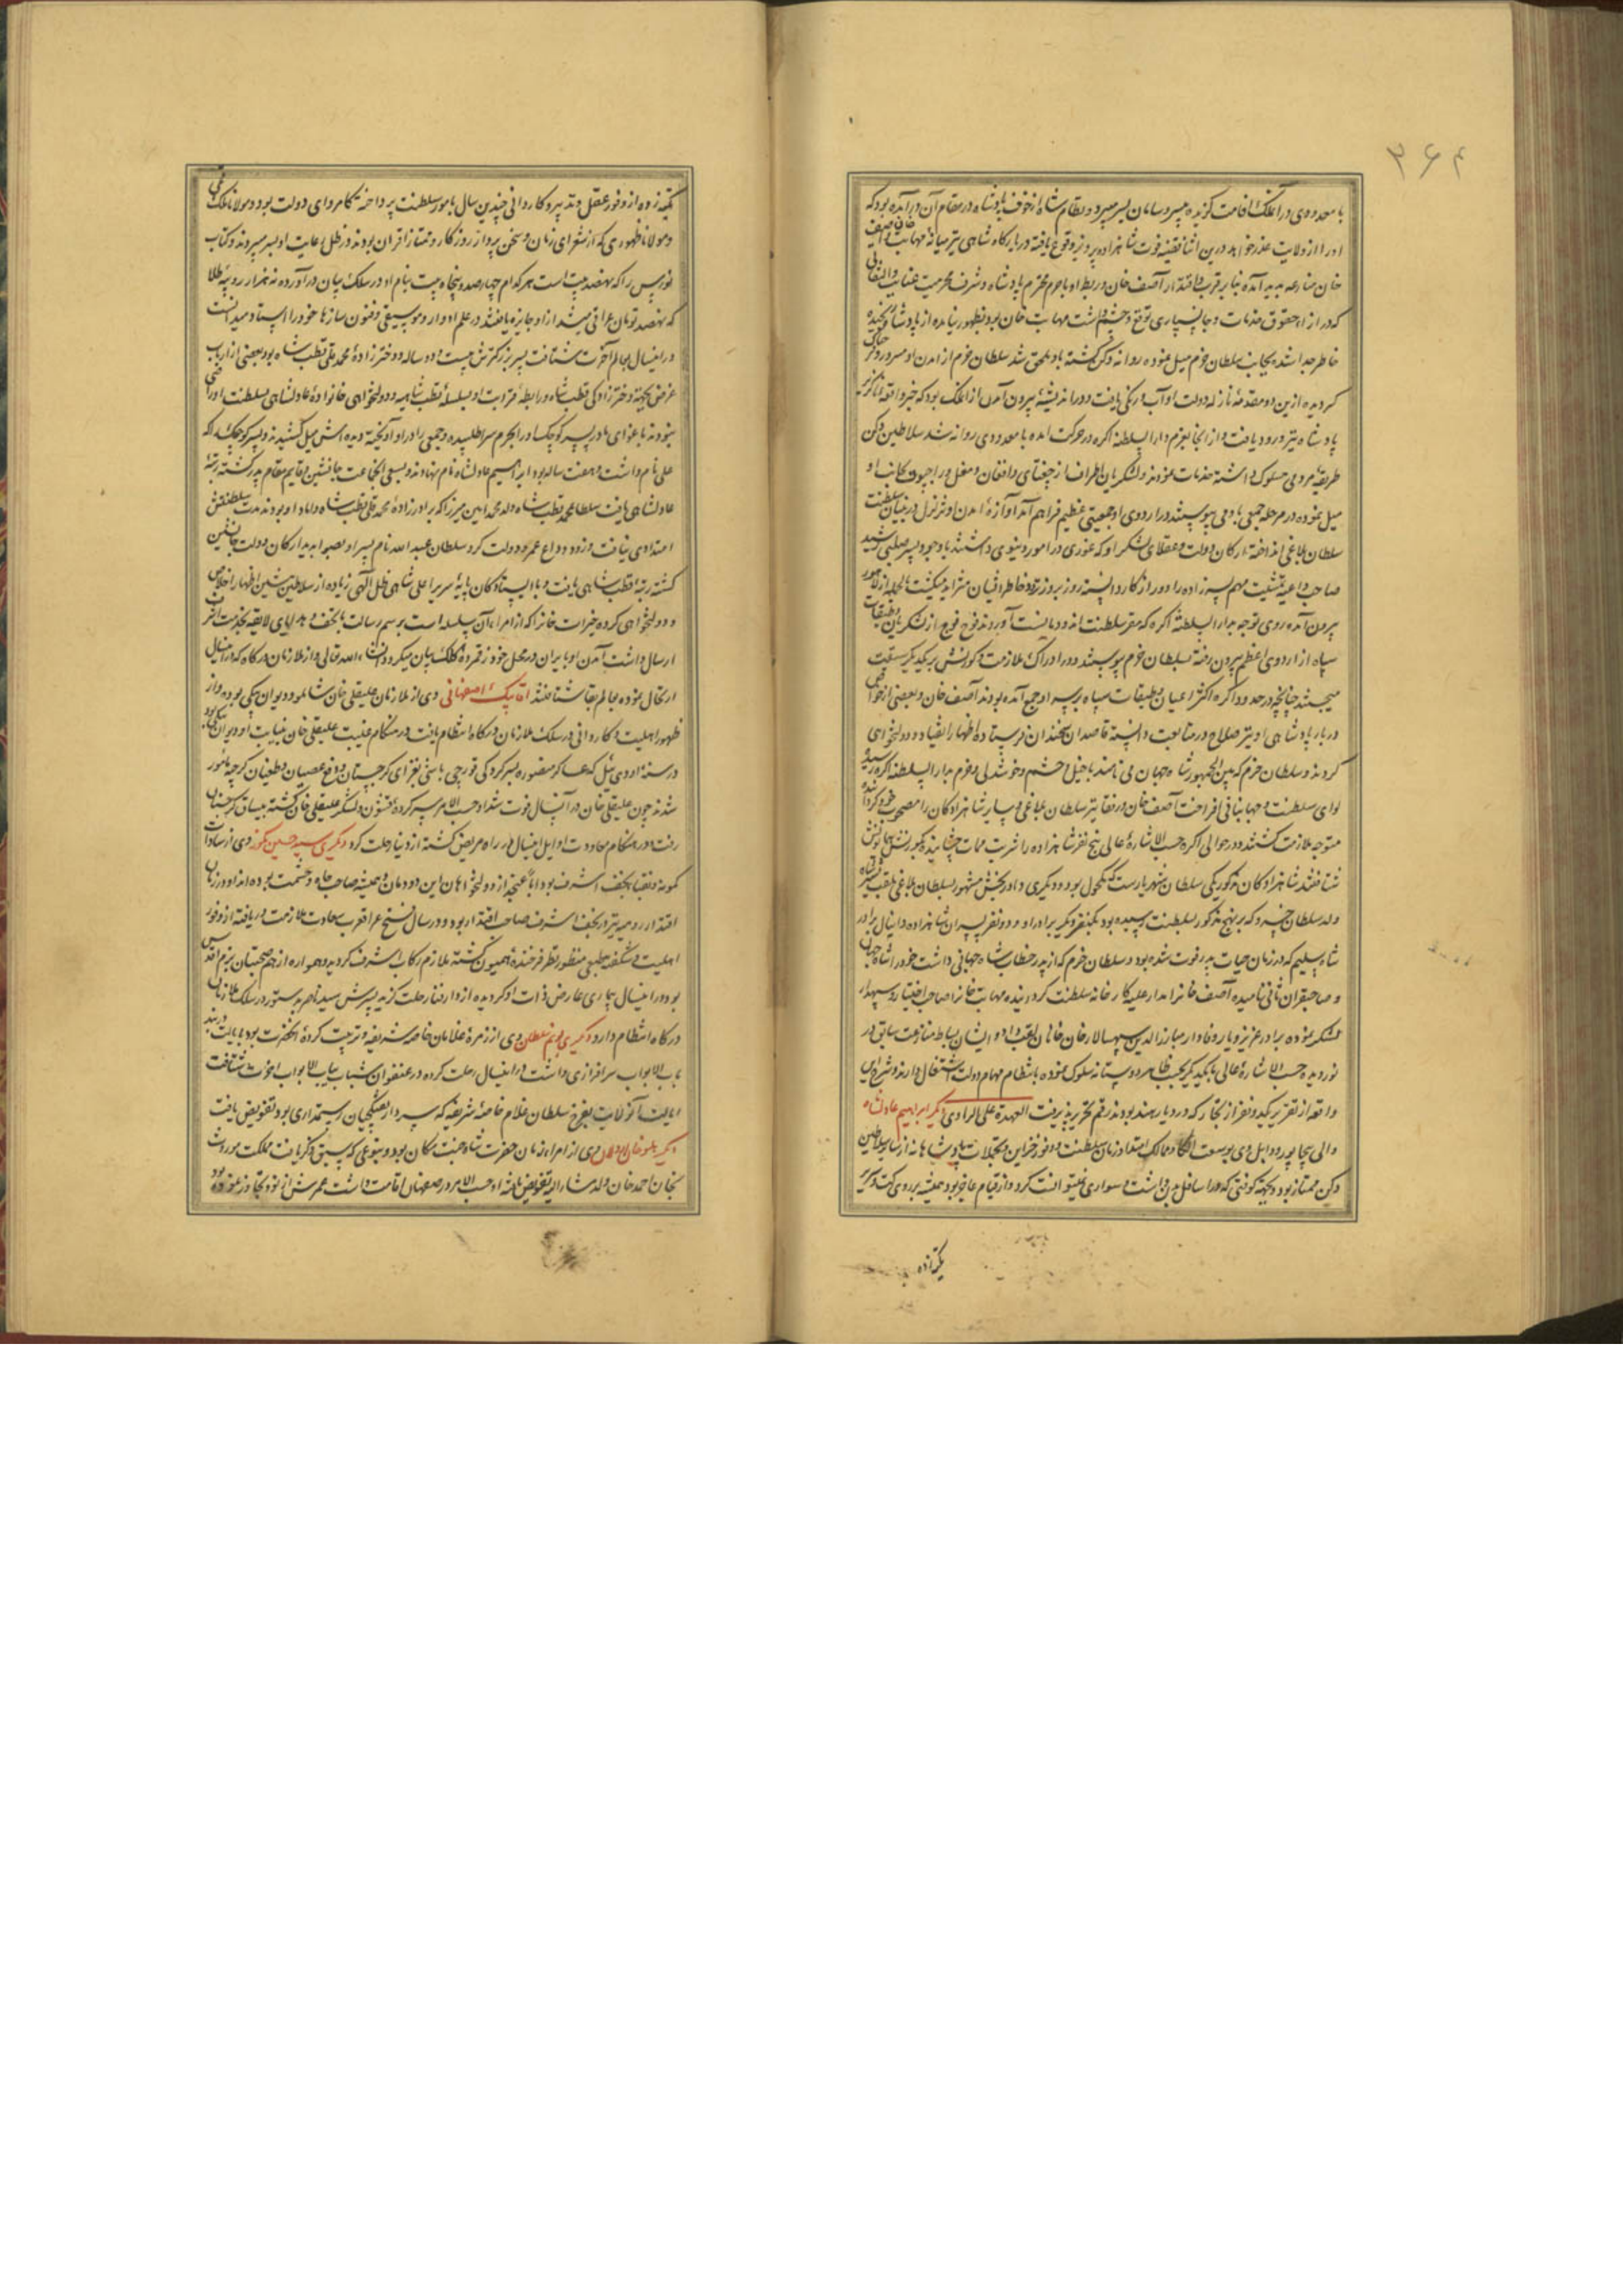 ۳۶۴
با معدودی در آن ملک اقامت گزیده بسر میبرد و نظام شاه از خوف پادشاه در مقام آن در آمده بود که
او را از ولایت عذر خواهد درین اثنا قضیه فوت شاهزاده پرویز وقوع یافته در بارگاه شاهی نیز میانه مهابت خان و آصف
خان منازعه پدید آمده بنا بر قرب و اقتدار آصف خان و ربط او با حرم محترم پادشاه و شرف محرمیت عنایت و التفاتی
که در ازاء حقوق خدمات و جانسپاری توقع و چشم داشت مهابت خان بود بظهور نیامده از پادشاه رنجیده
خاطر جدا شده بجانب سلطان خرم میل نموده روانه دکن گشته باو ملحق شد سلطان خرم از آمدن او مسرور و خوشحال
گردیده ازین دو مقدمه تازه دولت او آب و رنگی یافت و در اندیشه بیرون آمدن از آن ملک بود که خبر واقعه ناگزیر
پادشاه نیز ورود یافت و از آنجا بعزم دار السلطنه اکره در حرکت آمده با معدودی روانه شد سلاطین دکن
طریقه مردمی مسلوک داشته خدمات نمودند و لشکریان اطراف از جغتای و افغان و مغل و راجپوت بجانب او
میل نموده در هر مرحله جمعی باو می پیوستند در اردوی او جمعیتی عظیم فراهم آمد آوازه آمدن او تزلزل در بنیان سلطنت
سلطان بلاغی انداخته ارکان دولت و عقلای لشکر او که غوری در امور دنیوی داشتند با وجود پسر صلبی رشید
صاحب داعیه تمشیت مهم پسر زاده را دور از کار دانسته روز بروز تردد خاطر ایشان متزاید میگشت بالجمله از لاهور
بیرون آمده روی توجه بدار السلطنه اکره که مقر سلطنت اند و دهلیست آوردند فوج فوج از لشکریان و طبقات
سپاه از اردوی اعظم بیرون رفته بسلطان خرم پیوستند و در ادراک ملازمت و کورنش بر یکدیگر سبقت
میجستند چنانچه در حدود اکره اکثر اعیان و طبقات سپاه بر سر او جمع آمده بودند آصف خان و بعضی از خواص
دربار پادشاهی او نیز صلاح در متابعت دانسته قاصدان سخندان فرستاده اظهار انقیاد و دولتخواهی
کردند و سلطان خرم که بین الجمهور شاه جهان می نامند با خیل و حشم و خوشدلی و خرم بدار السلطنه اکره رسیده
لوای سلطنت و جهانبانی افراخت آصف خان و رفقا نیز سلطان بلاغی و سایر شاهزادگان را مصحوب خود گردانیده
متوجه ملازمت گشتند و در حوالی اکره حسب الاشاره عالی پنج نفر شاهزاده را شربت ممات چشانیده بکورنش همایونش
شتافتند شاهزادگان مذکور یکی سلطان شهریارست که مکحول بود و دیگری داور بخش مشهور بسلطان بلاغی ملقب بشیر شاه
ولد سلطان خسرو که بر نهج مذکور بسلطنت رسیده بود یکنفر دیگر برادر او و دو نفر پسران شاهزاده دانیال برادر
شاه سلیم که در زمان حیات پدر فوت شده بود و سلطان خرم که از پدر خطاب شاه جهانی داشت خود را شاه جهان
و صاحبقران ثانی نامیده آصف خانرا مدار علیه کارخانه سلطنت گردانیده مهابت خانرا صاحب اختیار و سپهدار
لشکر نموده برادر عزیز و یار وفادار مبارز الدین سپهسالار خان خانان لقب داد و ایشان بساط منازعت سابق در
نوردیده حسب الاشاره عالی با یکدیگر بحسب ظاهر دوستانه سلوک نموده بانتظام مهام دولت اشتغال دارند و شرح این
واقعه از تقریر یک دو نفر از تجار که در دیار هند بودند رقم تحریر پذیرفت العهدة علی الراوی دیگر ابراهیم عادلشاه
والی بیجاپور و دابل وی بوسعت الکا و ممالک امتداد زمان سلطنت و وفور خزاین و تجملات پادشاهانه از سایر سلاطین
دکن ممتاز بود و بجهته کوفتی که در اسافل بدن داشت سواری نمیتوانست کرد و از قیام عاجز بود همیشه بر روی کت و سریر
تکیه زده
تکیه زده از وفور عقل و تدبیر و کاردانی چندین سال بامور سلطنت پرداخته کامروای دولت بود و مولانا ملک قمی
و مولانا ظهوری که از شعرای زمان و سخن پرداز روزگار و ممتاز اقران بودند در ظل رعایت او بسر میبردند و کتاب
نورس را که نهصد بیت است هر کدام چهارصد و پنجاه بیت بنام او در سلک بیان در آورده نه هزار روپیه طلا
که نهصد تومان عراقی میشد از او جایزه یافتند در علم ادوار و موسیقی و فنون سازها خود را استاد میدانست
در اینسال بعالم آخرت شتافت پسر بزرگترش بیست و دو ساله و دختر زاده محمد قلی قطب شاه بود بعضی از ارباب
غرض بجهته دختر زادگی قطب شاه و رابطه قرابت او بسلسله قطب شاهیه و دولتخواهی خانواده عادلشاهی بسلطنت او راضی
نبودند باغوای مادر پسر کوچک او را بحرم سرا طلبیده و جمعی را در او آویخته دیده اش میل کشیدند و پسر کوچک را که
علی نام داشت و هفت ساله بود ابراهیم عادلشاه نام نهادند و بسعی آنجماعت جانشین و قایم مقام پدر گشته رتبه
عادلشاهی یافت سلطان محمد قطب شاه ولد محمد امین میرزا که برادر زاده محمد قلی قطب شاه و داماد او بود مدت سلطنتش
امتدادی نیافت و زود وداع عمر و دولت کرد سلطان عبد الله نام پسر او بصوابدید ارکان دولت جانشین
گشته رتبه قطب شاهی یافت و با ایستادگان پایه سریر اعلی شاهی ظل الهی زیاده از سلاطین پیشین اظهار اخلاص
و دولتخواهی کرده خیرات خانرا که از امراء آن سلسله است برسم رسالت با تحف و هدایای لایقه بخدمت اشرف
ارسال داشت آمدن او بایران در محل خود رقمزده کلک بیان میگردد انشاء الله تعالی و از ملازمان درگاه که در اینسال
ارتحال نموده بعالم بقا شتافتند آقا بیک اصفهانی وی از ملازمان علیقلی خان شاملو و دیوان بیگی بوده و از
ظهور اهلیت و کاردانی در سلک ملازمان درگاه انتظام یافت و در هنگام غیبت علیقلی خان بنیابت او دیوان بیگی بود
در سنه اودی ئیل که عساکر منصوره بسرکردگی قورچی باشی بغزای گرجستان و دفع عصیان و طغیان گرجیه مامور
شدند چون علیقلی خان در آنسال فوت شد او حسب الامر سرکرده قشون و لشکر علیقلی خان گشته بیساق گرجستان
رفت و در هنگام معاودت اوایل اینسال در راه مریض گشته از دنیا رحلت کرد دیگری سید حسین کمونه وی از سادات
کمونه و نقباء نجف اشرف بود اباً عن جد از دولتخواهان این دودمان و همیشه صاحب جاه و حشمت بوده اند او در زمان
اقتدار رومیه نیز در نجف اشرف صاحب اقتدار بود و در سال فتح عراق عرب سعادت ملازمت دریافته از وفور
اهلیت و شگفته طبعی منظور نظر فرخنده همیون گشته ملازم رکاب اشرف گردید و همواره از هم صحبتان بزم اقدس
بود در اینسال بیماری عارض ذات او گردیده از دار فنا رحلت گزید پسرش سید ناصر بدستور در سلک ملازمان
درگاه انتظام دارد دیگری سلطان وی از زمره غلامان خاصه شریفه و تربیت کرده آنحضرت بود بایالت دربند
باب الابواب سرافرازی داشت در اینسال رحلت کرده در عنفوان شباب بباب الابواب آخرت شتافت
ایالت آنولایت بفرخ سلطان غلام خاصه شریفه که سردار تفنگچیان رستمداری بود تفویض یافت
دیگر وی از امراء زمان حضرت شاه جنت مکان بود و بنوعی که سبق ذکر یافت مملکت موروث
بخان احمد خان ولد مشار الیه تفویض یافته او حسب الامر در صفهان اقامت داشت عمرش از نود تجاوز نموده بود